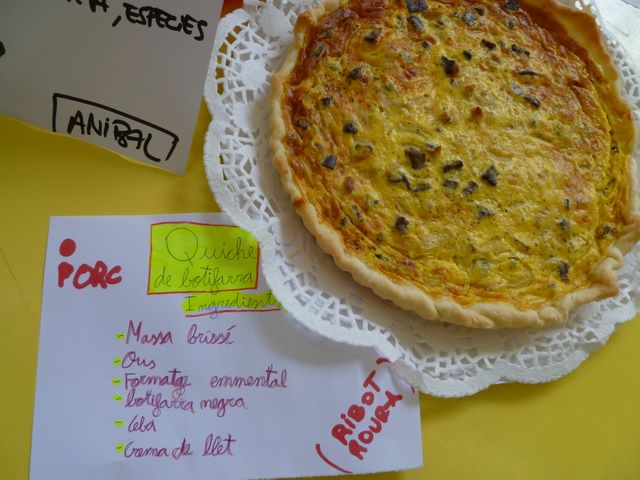 ESPECIES
ANIBAL
PORC
Quiche
de botifarra
Ingredients
- Massa brissé
- Ous
- Formatge emmental
- botifarra negra
- Ceba
- Crema de llet
(RIBOT